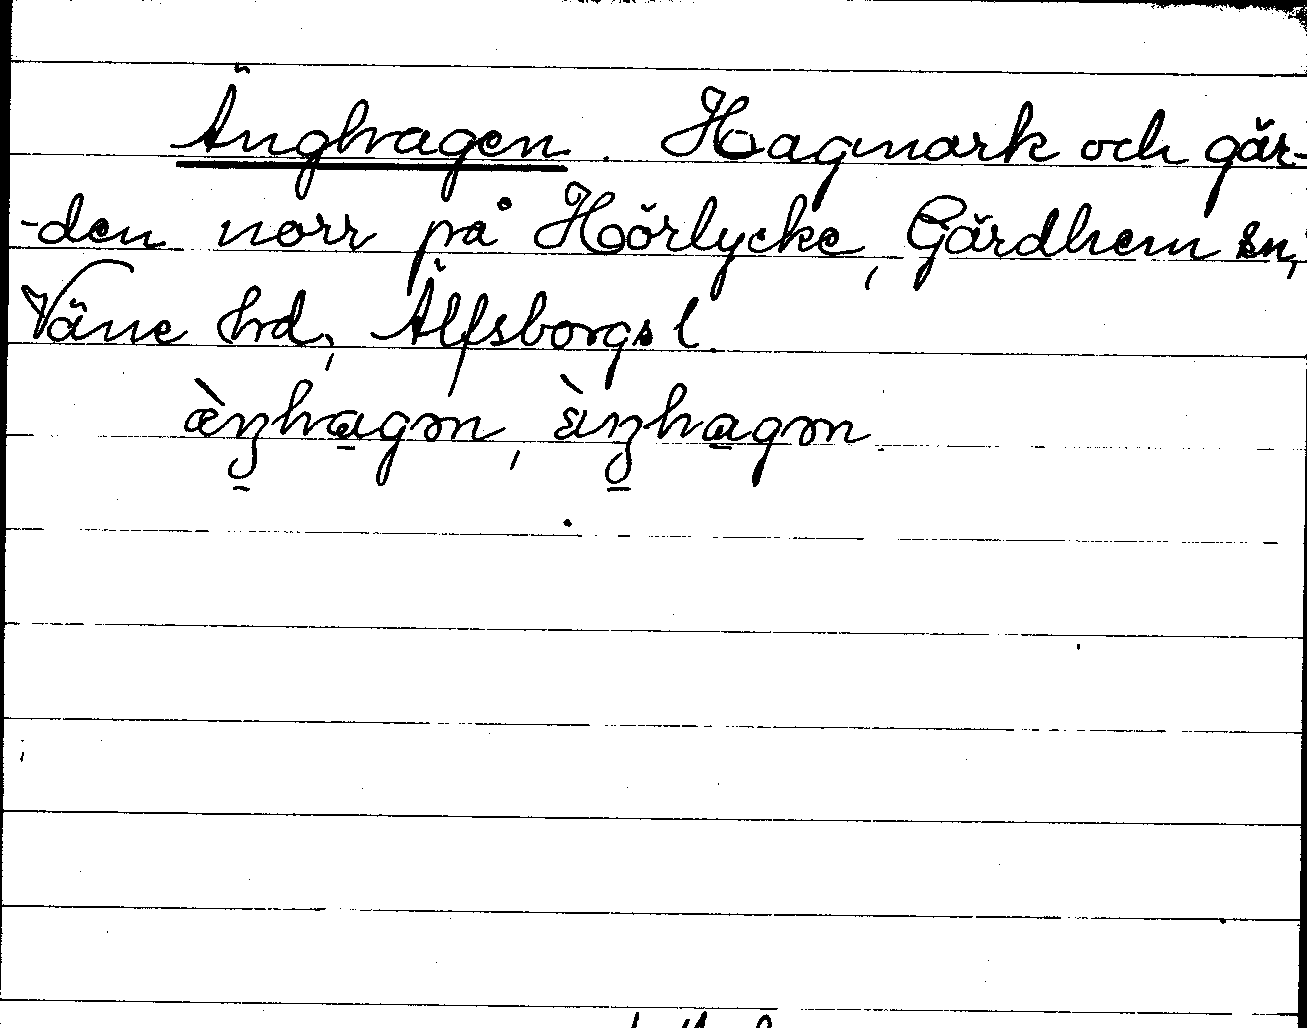 Änghagen. Hagmark och gär-
-den norr på Hörlycke, Gärdhem sn,
Väne hrd, Älfsborgs l.
æ̀ŋhagən, ä̀ŋhagən